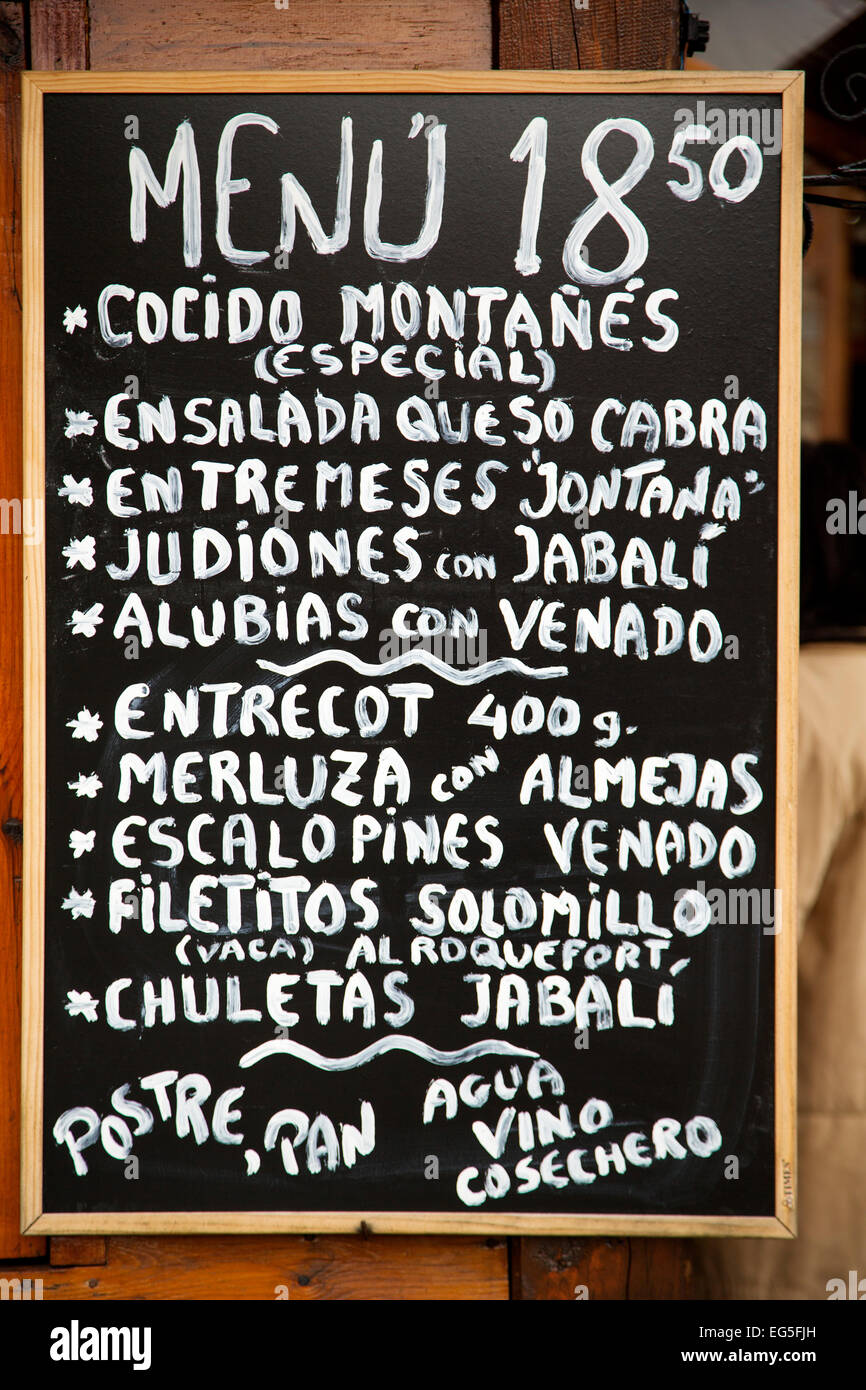 MENÚ 18 50
* COCIDO MONTAÑÉS
(ESPECIAL)
* ENSALADA QUESO CABRA
* ENTREMESES "JONTANA"
* JUDIONES CON JABALÍ
* ALUBIAS CON VENADO
* ENTRECOT 400 g.
* MERLUZA CON ALMEJAS
* ESCALOPINES VENADO
* FILETITOS SOLOMILLO
(VACA) AL ROQUEFORT,
* CHULETAS JABALÍ
POSTRE, PAN
AGUA
VINO
COSECHERO
A-TIMES
alamy
Image ID: EG5FJH
www.alamy.com